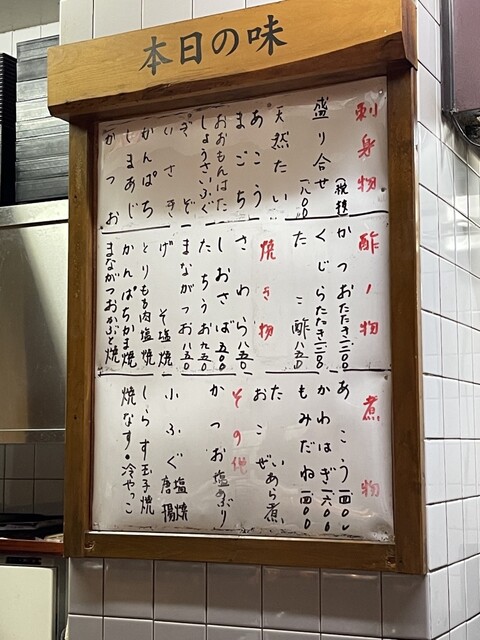 本日の味
刺身物
盛り合せ(税抜)一八〇〇
天然たい
あこう
まごち
おおもんはた
しょうさいふぐ
ぎざ
いさき
かんぱち
しまあじ
かつお
酢ノ物
かつおたたき一二〇〇
くじらたたき一二〇〇
たこ酢八五〇
焼き物
さわら八五〇
しおさば五〇〇
たちうお九五〇
まながつお八五〇
げそ塩焼
とりもも肉塩焼
かんぱちかま焼
まながつおかぶと焼
煮物
あこう一四〇〇
かわはぎ一六〇〇
もみだね一四〇〇
たいあら煮
おこぜ
その他
かつお塩あぶり
小ふぐ塩焼唐揚
しらす玉子焼
焼なす・冷やっこ